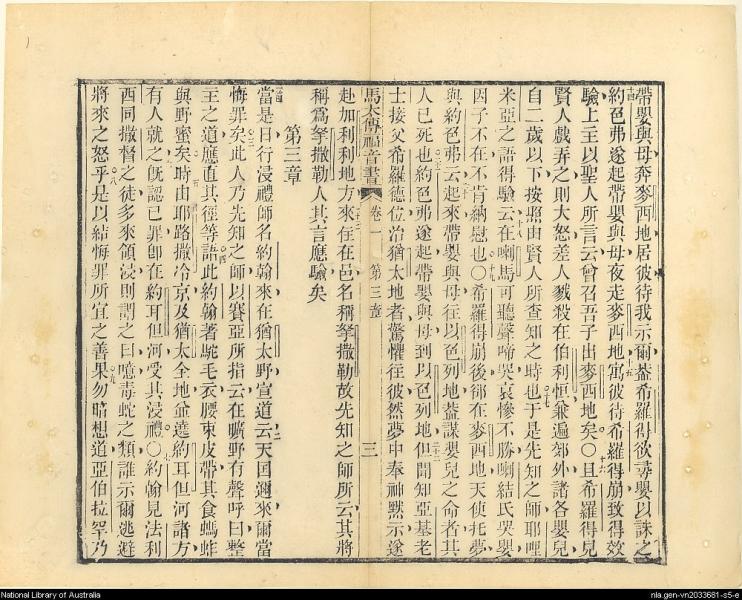 帶嬰與母奔麥西地居彼待我示爾葢希羅得欲尋嬰以誅之
約色弗遂起帶嬰與母夜走麥西地寓彼待希羅得崩致得效
驗上主以聖人所言云曾召吾子出麥西地矣○且希羅得見
賢人戲弄之則大怒差人戮殺在伯利恒兼遍郊外諸各嬰兒
自二歲以下按照由賢人所查知之時也于是先知之師耶哩
米亞之語得驗云在喇馬可聽聲啼哭哀慘不勝喇結氏哭嬰
因子不在不肯納慰也○希羅得崩後郤在麥西地天使托夢
與約色弗云起來帶嬰與母往以色列地葢謀嬰兒之命者其
人已死也約色弗遂起帶嬰與母到以色列地但聞知亞基老
士接父希羅德位治猶太地者驚懼往彼然夢中奉神黙示遂
馬太傳福音書 卷一 第三章 三
赴加利利地方來住在邑名稱拏撒勒故先知之師所云其將
稱爲拏撒勒人其言應騐矣
第三章
當是日行浸禮師名約翰來在猶太野宣道云天国邇來爾當
悔罪矣此人乃先知之師以賽亞所指云在曠野有聲呼曰整
主之道應直其徑等語此約翰著駝毛衣腰束皮帶其食螞蚱
與野蜜矣時由耶路撒冷京及猶太全地並遶約耳但河諸方
有人就之旣認已罪卽在約耳但河受其浸禮○約翰見法利
西同撒督之徒多來領浸則謂之曰噫毒蛇之類誰示爾逃避
將來之怒乎是以結悔罪所宜之善果勿暗想道亞伯拉罕乃
National Library of Australia
nla.gen-vn2033681-s5-e